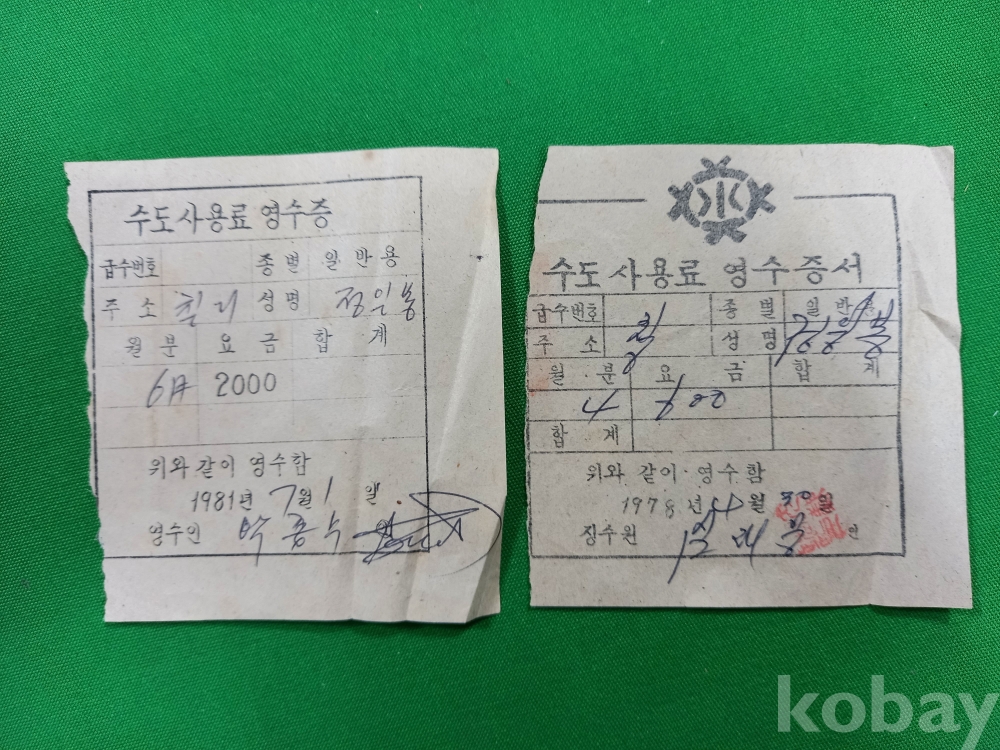 수도사용료 영수증
급수번호 종별 일반용
주소 칠리 성명 정일봉
월분 요금 합계
6月 2000
위와 같이 영수함
1981년 7월 1일
영수인 박종수
水
수도사용료 영수증서
급수번호 종별 일반용
주소 성명
월분 요금 합계
4 600
합계
위와 같이 영수함
1978년 4월 30일
징수원 인
kobay